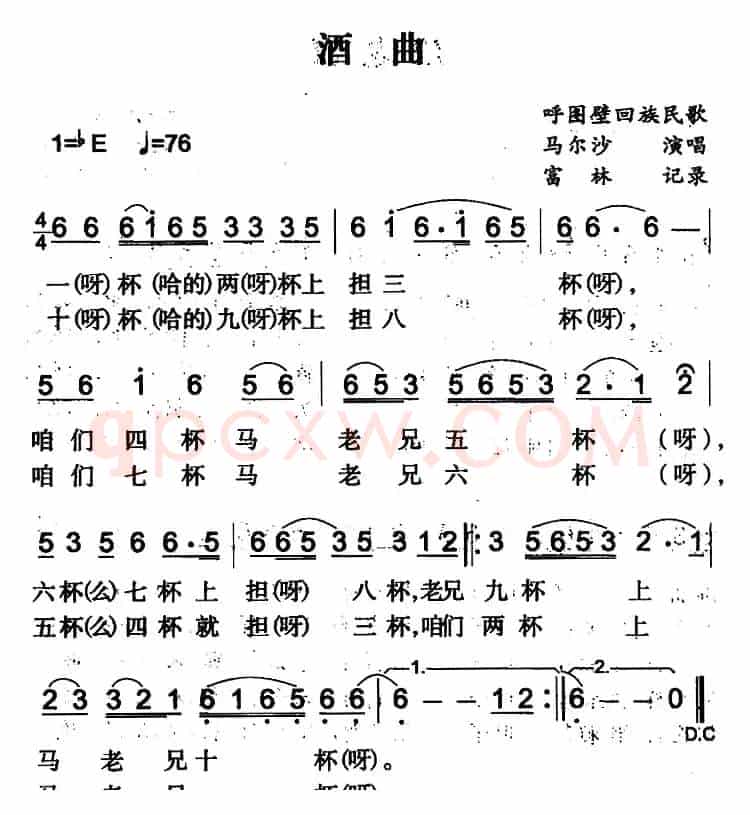 酒 曲
呼图壁回族民歌
1=♭E ♩=76
马尔沙 演唱
富 林 记录
4/4 6 6 6 i 6 5 3 3 3 5 | 6 i 6 · i 6 5 | 6 6 · 6 — |
一(呀)杯(哈的)两(呀)杯上 担三 杯(呀),
十(呀)杯(哈的)九(呀)杯上 担八 杯(呀),
5 6 i 6 5 6 | 6 5 3 5 6 5 3 2 · 1 2 |
咱们四杯马 老兄五 杯(呀),
咱们七杯马 老兄六 杯(呀),
qpcxw.COM
5 3 5 6 6 · 5 | 6 6 5 3 5 3 1 2 ‖: 3 5 6 5 3 2 · 1 |
六杯(么)七杯上 担(呀) 八杯,老兄九杯 上
五杯(么)四杯就 担(呀) 三杯,咱们两杯 上
1. 2.
2 3 3 2 1 6 1 6 5 6 6 | 6 — — 1 2 :‖ 6 — — 0 ‖
D.C
马老兄十 杯(呀)。